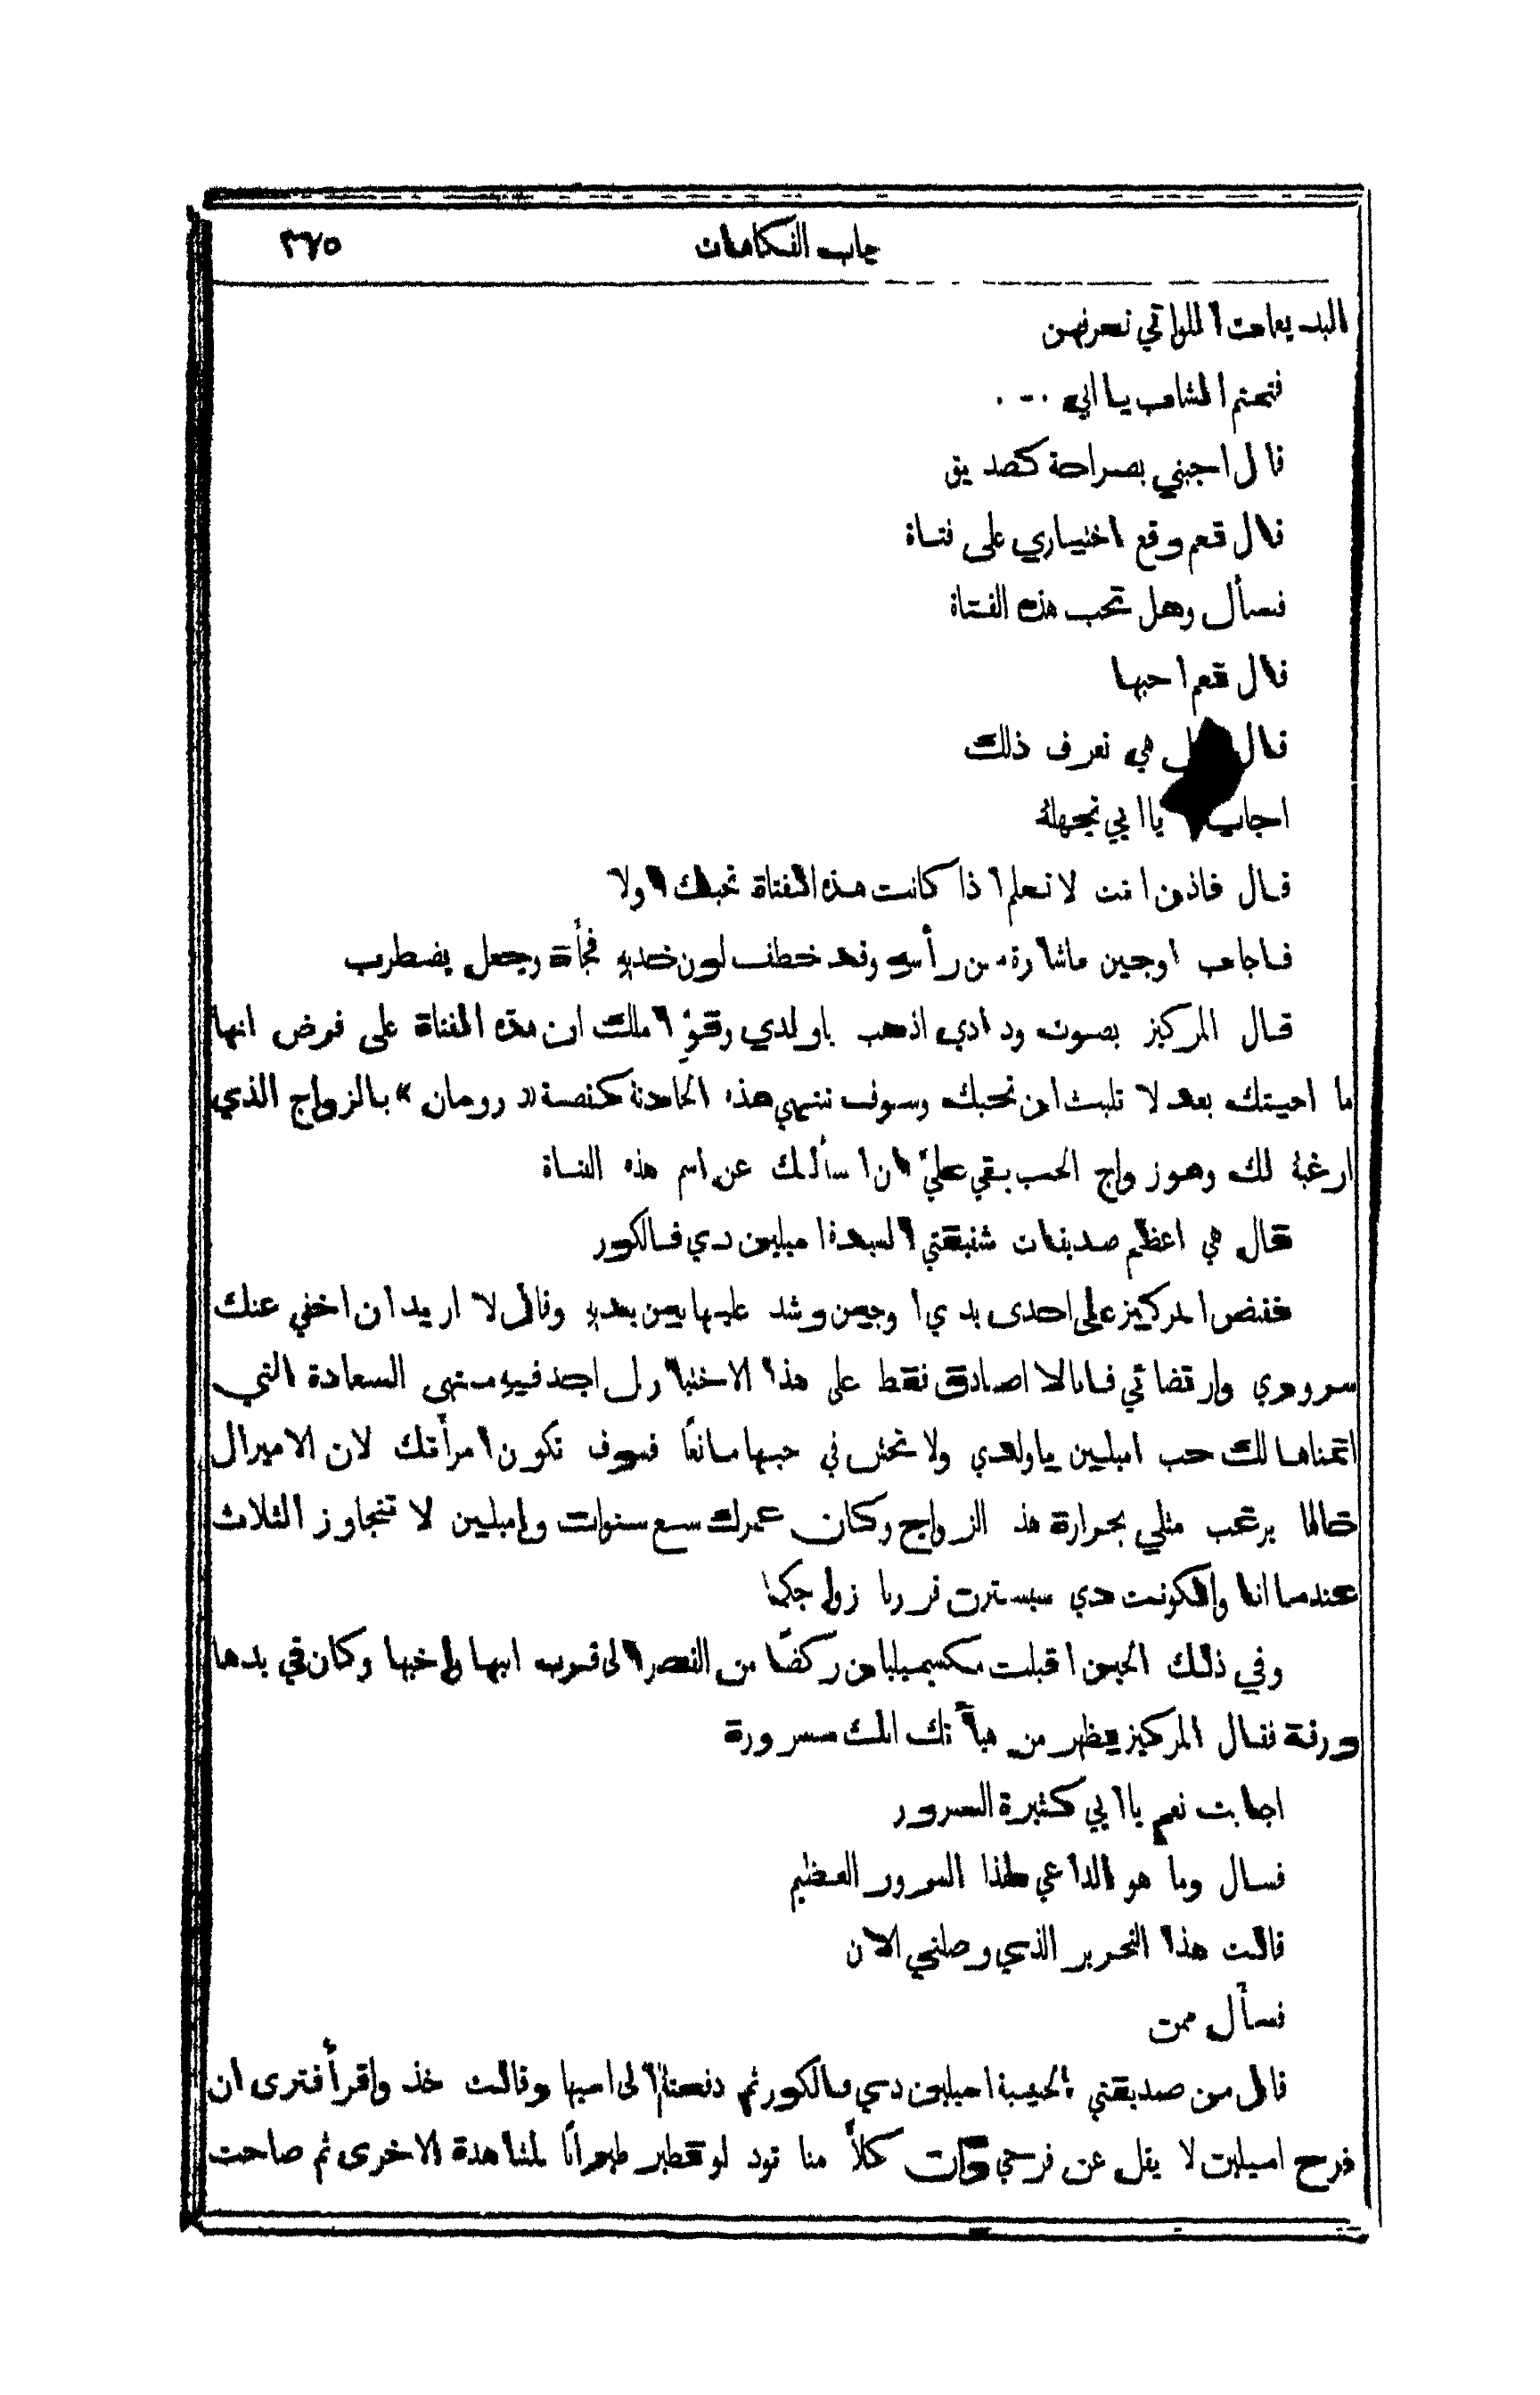 باب الفكاهات ٣٧٥
البديعات اللواتي تعرفهن
فتمتم الشاب يا ابي . . .
قال اجبني بصراحة كصديق
قال نعم وقع اختياري على فتاة
فسأل وهل تحب هذه الفتاة
قال نعم احبها
قال هل هي تعرف ذلك
اجاب يا ابي تجهلهُ
قال فاذن انت لا تعلم اذا كانت هذه الفتاة تحبك او لا
فاجاب اوجين باشارة من رأسهِ وقد خطف لون خديهِ فجأة وجعل يضطرب
قال المركيز بصوت ودادي اذهب ياولدي وقوِّ املك ان هذه الفتاة على فرض انها
ما احبتك بعد لا تلبث ان تحبك وسوف تنتهي هذه الحادثة كقصة « رومان » بالزواج الذي
ارغبهُ لك وهو زواج الحب بقي عليَّ ان اسألك عن اسم هذه الفتاة
قال هي اعظم صديقات شقيقتي السيدة اميلين دي فالكور
فقبض المركيز على احدى يدي اوجين وشد عليها بين يديهِ وقال لا اريد ان اخفي عنك
سروري وارتضائي فانا لا اصادق فقط على هذا الاختيار بل اجد فيهِ منتهى السعادة التي
اتمناها لك حب اميلين ياولدي ولا تخش في حبها مانعًا فسوف تكون امرأتك لان الاميرال
خالها يرغب مثلي بحرارة هذا الزواج وكان عمرك سبع سنوات واميلين لا تتجاوز الثلاث
عندما انا والكونت دي سيسترن قررنا زواجكما
وفي ذلك الحين اقبلت مكسيميليان ركضًا من القصر الى قرب ابيها واخيها وكان في يدها
ورقة فقال المركيز يظهر من هيأتك انك مسرورة
اجابت نعم يا ابي كثيرة السرور
فسال وما هو الداعي لهذا السرور العظيم
قالت هذا التحرير الذي وصلني الان
فسأل ممن
قال من صديقتي الحبيبة اميلين دي فالكور ثم دفعتهُ الى ابيها وقالت خذ واقرأ فترى ان
فرح اميلين لا يقل عن فرحي وان كلاًّ منا تود لو تطير طيرانًا لمشاهدة الاخرى ثم صاحت